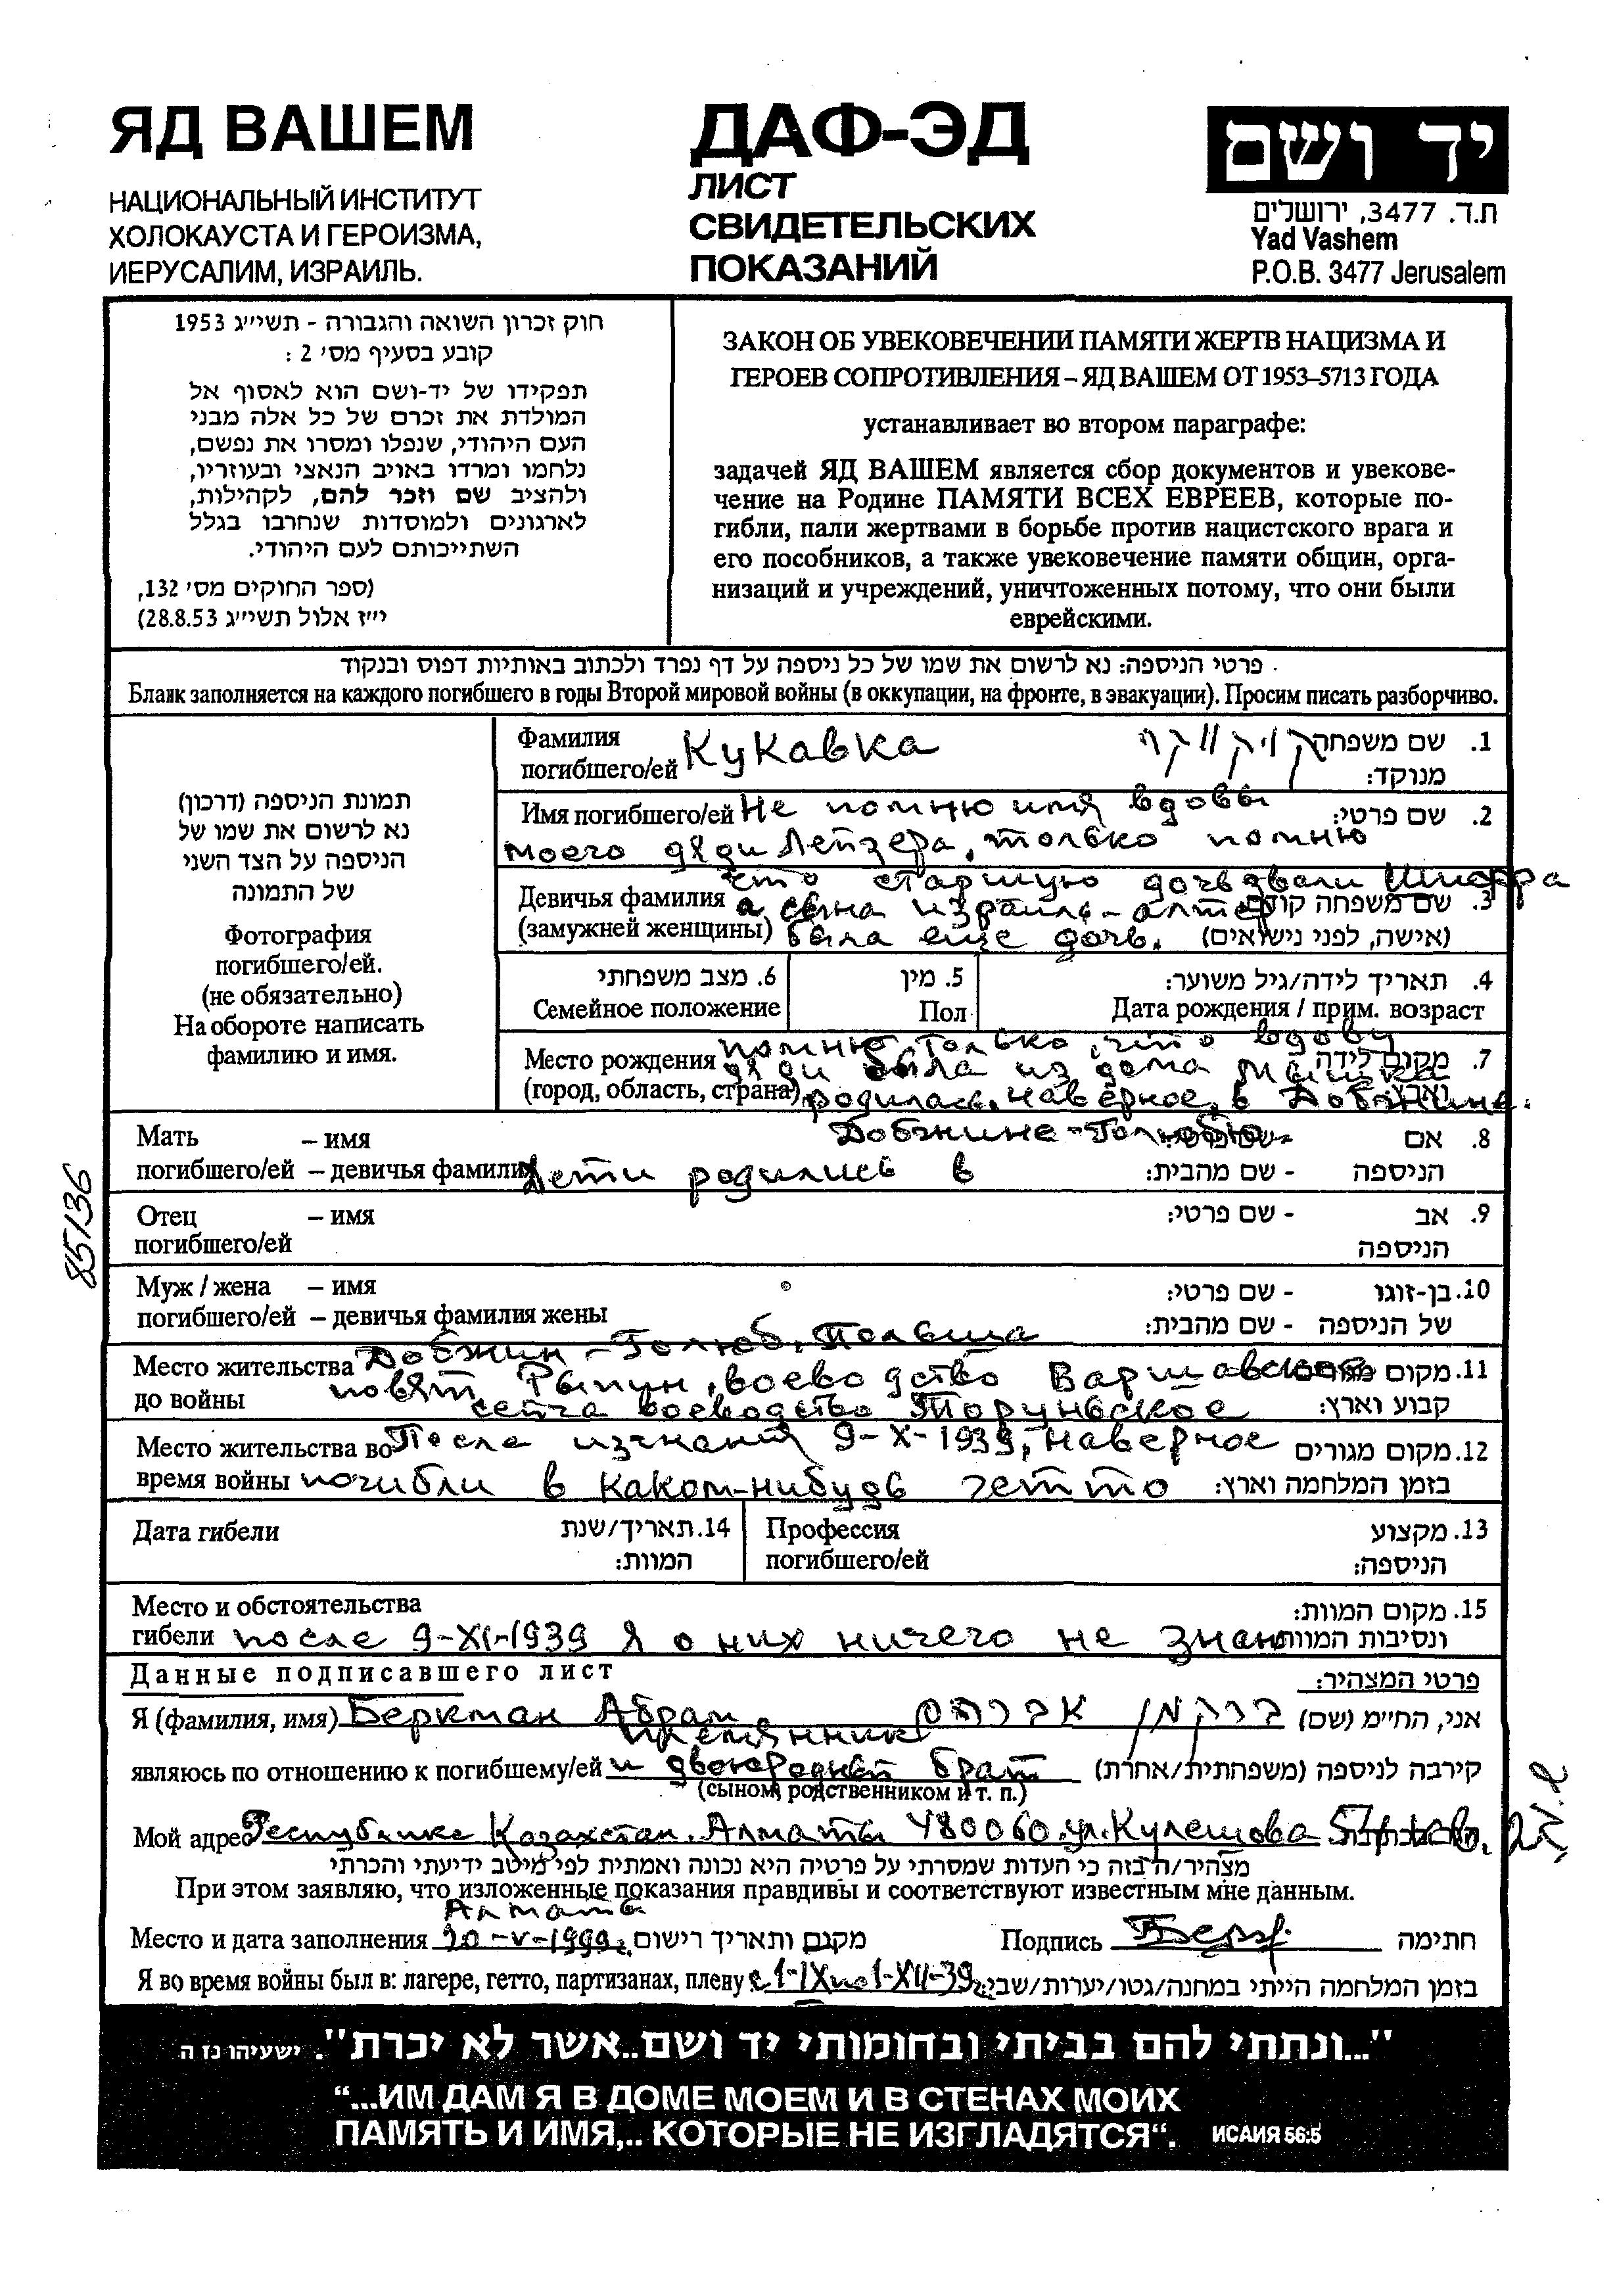 ЯД ВАШЕМ
НАЦИОНАЛЬНЫЙ ИНСТИТУТ
ХОЛОКАУСТА И ГЕРОИЗМА,
ИЕРУСАЛИМ, ИЗРАИЛЬ.
ДАФ-ЭД
ЛИСТ
СВИДЕТЕЛЬСКИХ
ПОКАЗАНИЙ
יד ושם
ת.ד. 3477, ירושלים
Yad Vashem
P.O.B. 3477 Jerusalem
חוק זכרון השואה והגבורה - תשי״ג 1953
קובע בסעיף מס׳ 2 :
תפקידו של יד-ושם הוא לאסוף אל
המולדת את זכרם של כל אלה מבני
העם היהודי, שנפלו ומסרו את נפשם,
נלחמו ומרדו באויב הנאצי ובעוזריו,
ולהציב שם וזכר להם, לקהילות,
לארגונים ולמוסדות שנחרבו בגלל
השתייכותם לעם היהודי.
(ספר החוקים מס׳ 132,
י״ז אלול תשי״ג 28.8.53)
ЗАКОН ОБ УВЕКОВЕЧЕНИИ ПАМЯТИ ЖЕРТВ НАЦИЗМА И
ГЕРОЕВ СОПРОТИВЛЕНИЯ – ЯД ВАШЕМ ОТ 1953–5713 ГОДА
устанавливает во втором параграфе:
задачей ЯД ВАШЕМ является сбор документов и увекове-
чение на Родине ПАМЯТИ ВСЕХ ЕВРЕЕВ, которые по-
гибли, пали жертвами в борьбе против нацистского врага и
его пособников, а также увековечение памяти общин, орга-
низаций и учреждений, уничтоженных потому, что они были
еврейскими.
פרטי הניספה: נא לרשום את שמו של כל ניספה על דף נפרד ולכתוב באותיות דפוס ובנקוד
Бланк заполняется на каждого погибшего в годы Второй мировой войны (в оккупации, на фронте, в эвакуации). Просим писать разборчиво.
תמונת הניספה (דרכון)
נא לרשום את שמו של
הניספה על הצד השני
של התמונה
Фотография
погибшего/ей.
(не обязательно)
На обороте написать
фамилию и имя.
Фамилия Кукавка 1. שם משפחה
погибшего/ей מנוקד:
Имя погибшего/ей Не помню имя вдовы 2. שם פרטי:
моего дяди Лейзера, только помню
что старшую дочь звали Шифра
Девичья фамилия а сына израиль-алтер 3. שם משפחה קודם
(замужней женщины) была еще дочь. (אישה, לפני נישואים)
6. מצב משפחתי 5. מין 4. תאריך לידה/גיל משוער:
Семейное положение Пол Дата рождения / прим. возраст
помню только, что вдову
Место рождения дяди была из дома 7. מקום לידה
(город, область, страна) родилась, наверное, в Добжине.
Добжине-Голюбю
Мать – имя 8. אם - שם פרטי:
погибшего/ей – девичья фамилия Дети родились в הניספה - שם מהבית:
Отец – имя 9. אב - שם פרטי:
погибшего/ей הניספה
Муж / жена – имя 10. בן-זוגו - שם פרטי:
погибшего/ей – девичья фамилия жены של הניספה - שם מהבית:
Добжин-Голюб, Польша
Место жительства повят Рыпин, воеводство Варшавское 11. מקום מגורים
до войны сейча воеводство Торуньское קבוע וארץ:
Место жительства во После изгнания 9-X-1939, наверное 12. מקום מגורים
время войны погибли в каком-нибудь гетто בזמן המלחמה וארץ:
Дата гибели 14. תאריך/שנת Профессия 13. מקצוע
המוות: погибшего/ей הניספה:
Место и обстоятельства 15. מקום המוות:
гибели после 9-XI-1939 я о них ничего не знаю ונסיבות המוות
Данные подписавшего лист פרטי המצהיר:
Я (фамилия, имя) Беркман Абрам ברקמן אברהם אני, החי״מ (שם)
племянник
являюсь по отношению к погибшему/ей и двоюродный брат קירבה לניספה (משפחתית/אחרת)
(сыном, родственником и т. п.)
Мой адрес Республике Казахстан. Алматы 480060 ул. Кулешова
מצהיר/ה בזה כי העדות שמסרתי על פרטיה היא נכונה ואמתית לפי מיטב ידיעתי והכרתי
При этом заявляю, что изложенные показания правдивы и соответствуют известным мне данным.
Алматы
Место и дата заполнения 20-V-1999г. מקום ותאריך רישום Подпись חתימה
Я во время войны был в: лагере, гетто, партизанах, плену с 1-IX по 1-XII-39г. בזמן המלחמה הייתי במחנה/גטו/יערות/שבי:
85136
"...ונתתי להם בביתי ובחומותי יד ושם..אשר לא יכרת". ישעיהו נז ה
“...ИМ ДАМ Я В ДОМЕ МОЕМ И В СТЕНАХ МОИХ
ПАМЯТЬ И ИМЯ,.. КОТОРЫЕ НЕ ИЗГЛАДЯТСЯ“. ИСАИЯ 56:5